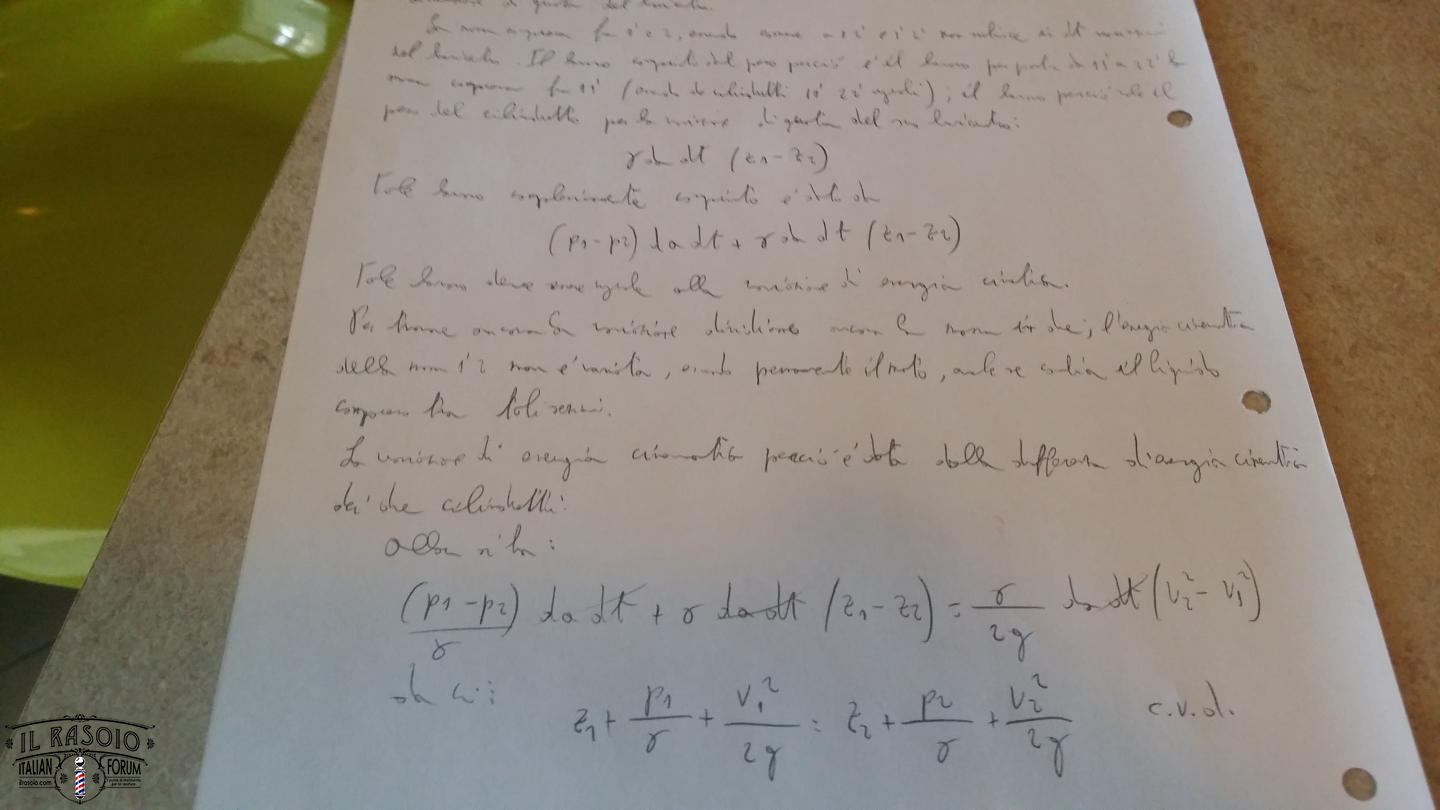 La massa compresa fra 1' e 2, essendo comune a 12 e 1'2' non subisce in dt variazioni
del baricentro. Il lavoro compiuto dal peso perciò è il lavoro per portare da 11' a 22' la
massa compresa fra 11' (essendo i cilindretti 11' 22' uguali); il lavoro perciò vale il
peso del cilindretto per la variazione di quota del suo baricentro:
γ da dt (z1 - z2)
Tale lavoro complessivamente compiuto è dato da
(p1 - p2) da dt + γ da dt (z1 - z2)
Tale lavoro deve essere uguale alla variazione di energia cinetica.
Per trovare ancora la variazione dividiamo ancora la massa in due; l'energia cinetica
della massa 1'2 non è variata, essendo permanente il moto, anche se cambia il liquido
compreso tra tali sezioni.
La variazione di energia cinetica perciò è data dalla differenza d'energia cinetica
dei due cilindretti:
Allora si ha:
(p1 - p2)/γ da dt + γ da dt (z1 - z2) = γ/2g da dt (v2² - v1²)
da cui: z1 + p1/γ + v1²/2g = z2 + p2/γ + v2²/2g c.v.d.
IL RASOIO
ITALIAN FORUM
ilrasoio.com